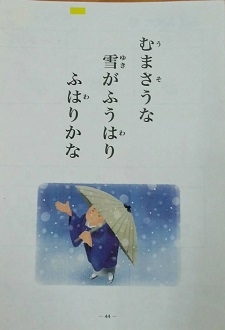 むまさうな
雪がふうはり
ふはりかな
う
そ
ゆき
わ
わ
— 44 —